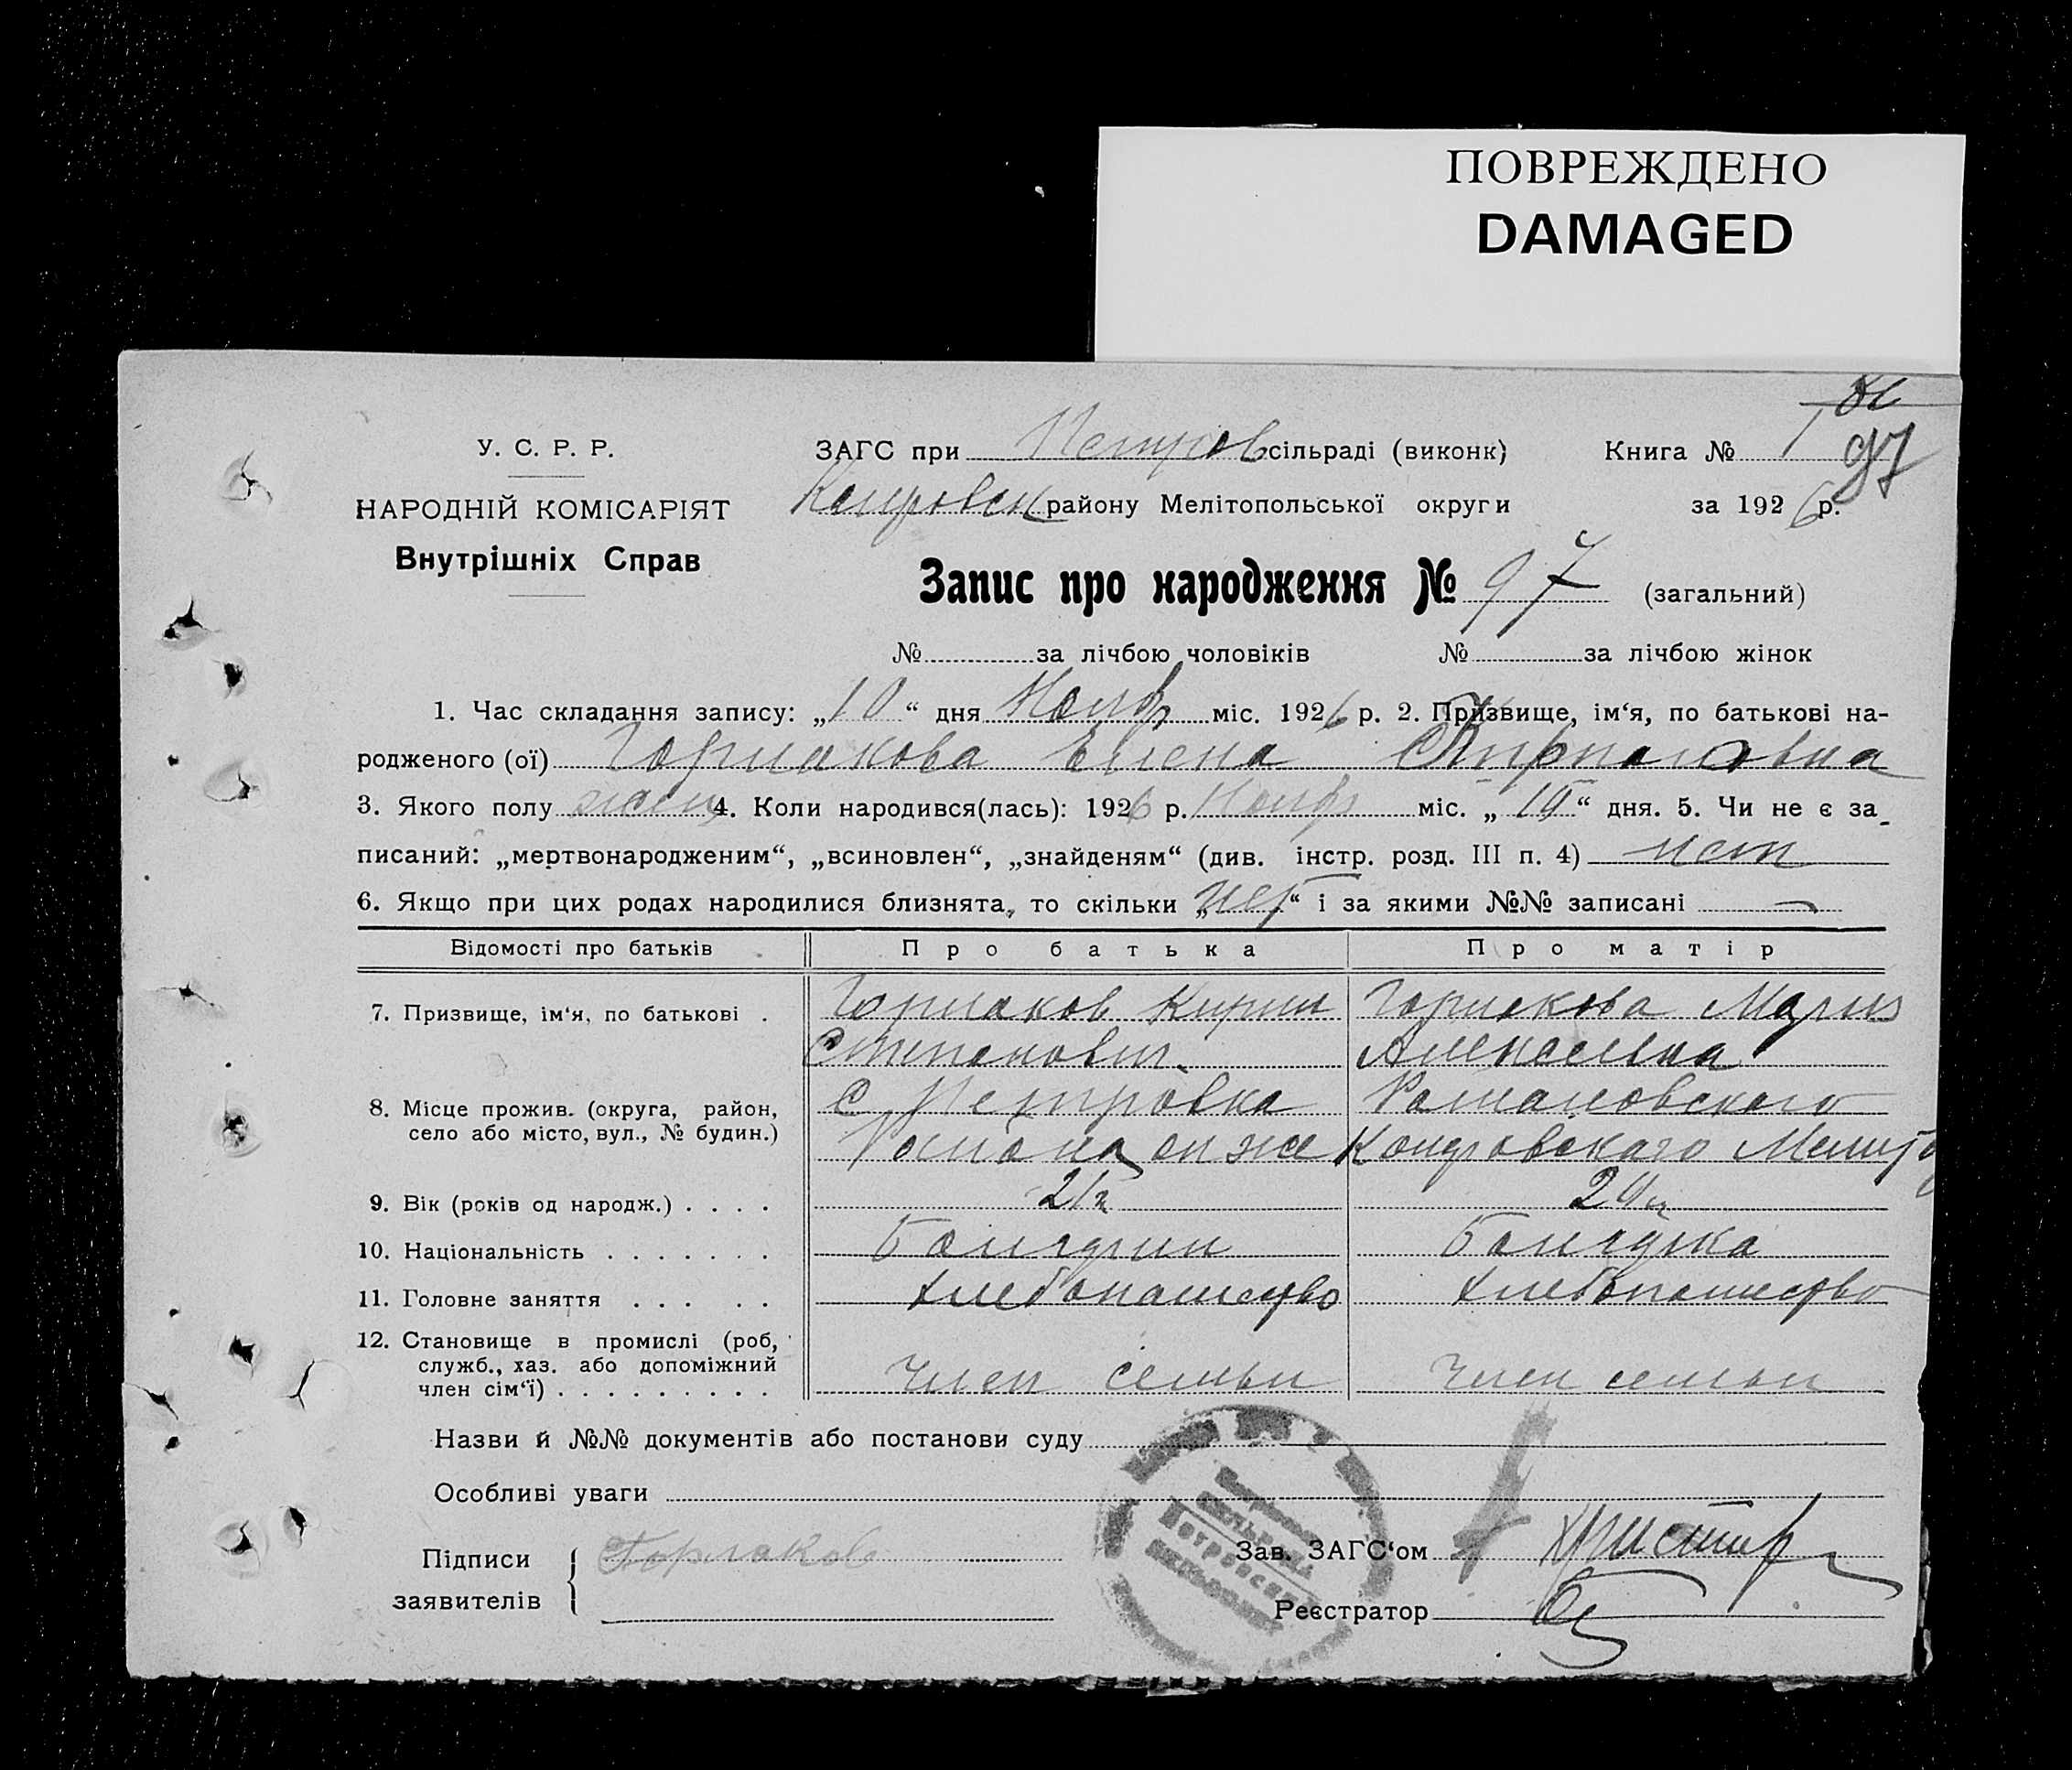 ПОВРЕЖДЕНО
DAMAGED
У. С. Р. Р.
НАРОДНІЙ КОМІСАРІЯТ
Внутрішніх Справ
ЗАГС при Петров сільраді (виконк)
району Мелітопольської округи
Книга № 1
97
за 1926 р.
Запис про народження № 97 (загальний)
№ за лічбою чоловіків № за лічбою жінок
1. Час складання запису: „10“ дня Ноябр міс. 1926 р. 2. Призвище, ім‘я, по батькові на-
родженого (ої) Елена
3. Якого полу жен 4. Коли народився(лась): 1926 р. Ноябр міс. „10“ дня. 5. Чи не є за-
писаний: „мертвонародженим“, „всиновлен“, „знайденям“ (див. інстр. розд. III п. 4) нет
6. Якщо при цих родах народилися близнята, то скільки „нет“ і за якими №№ записані —
Відомості про батьків Про батька Про матір
7. Призвище, ім‘я, по батькові . Кирил Мария
Степанович Алексеевна
8. Місце прожив. (округа, район, С Петровка
село або місто, вул., № будин.)
9. Вік (років од народж.) . . . . 21 л 20 л
10. Національність . . . . . . . Болгарин Болгарка
11. Головне заняття . . . . . Хлебопашество Хлебопашество
12. Становище в промислі (роб,
служб., хаз. або допоміжний
член сім‘ї) . . . . . . . . . член семьи член семьи
Назви й №№ документів або постанови суду
Особливі уваги
Підписи
заявителів
Зав. ЗАГС‘ом
Реєстратор